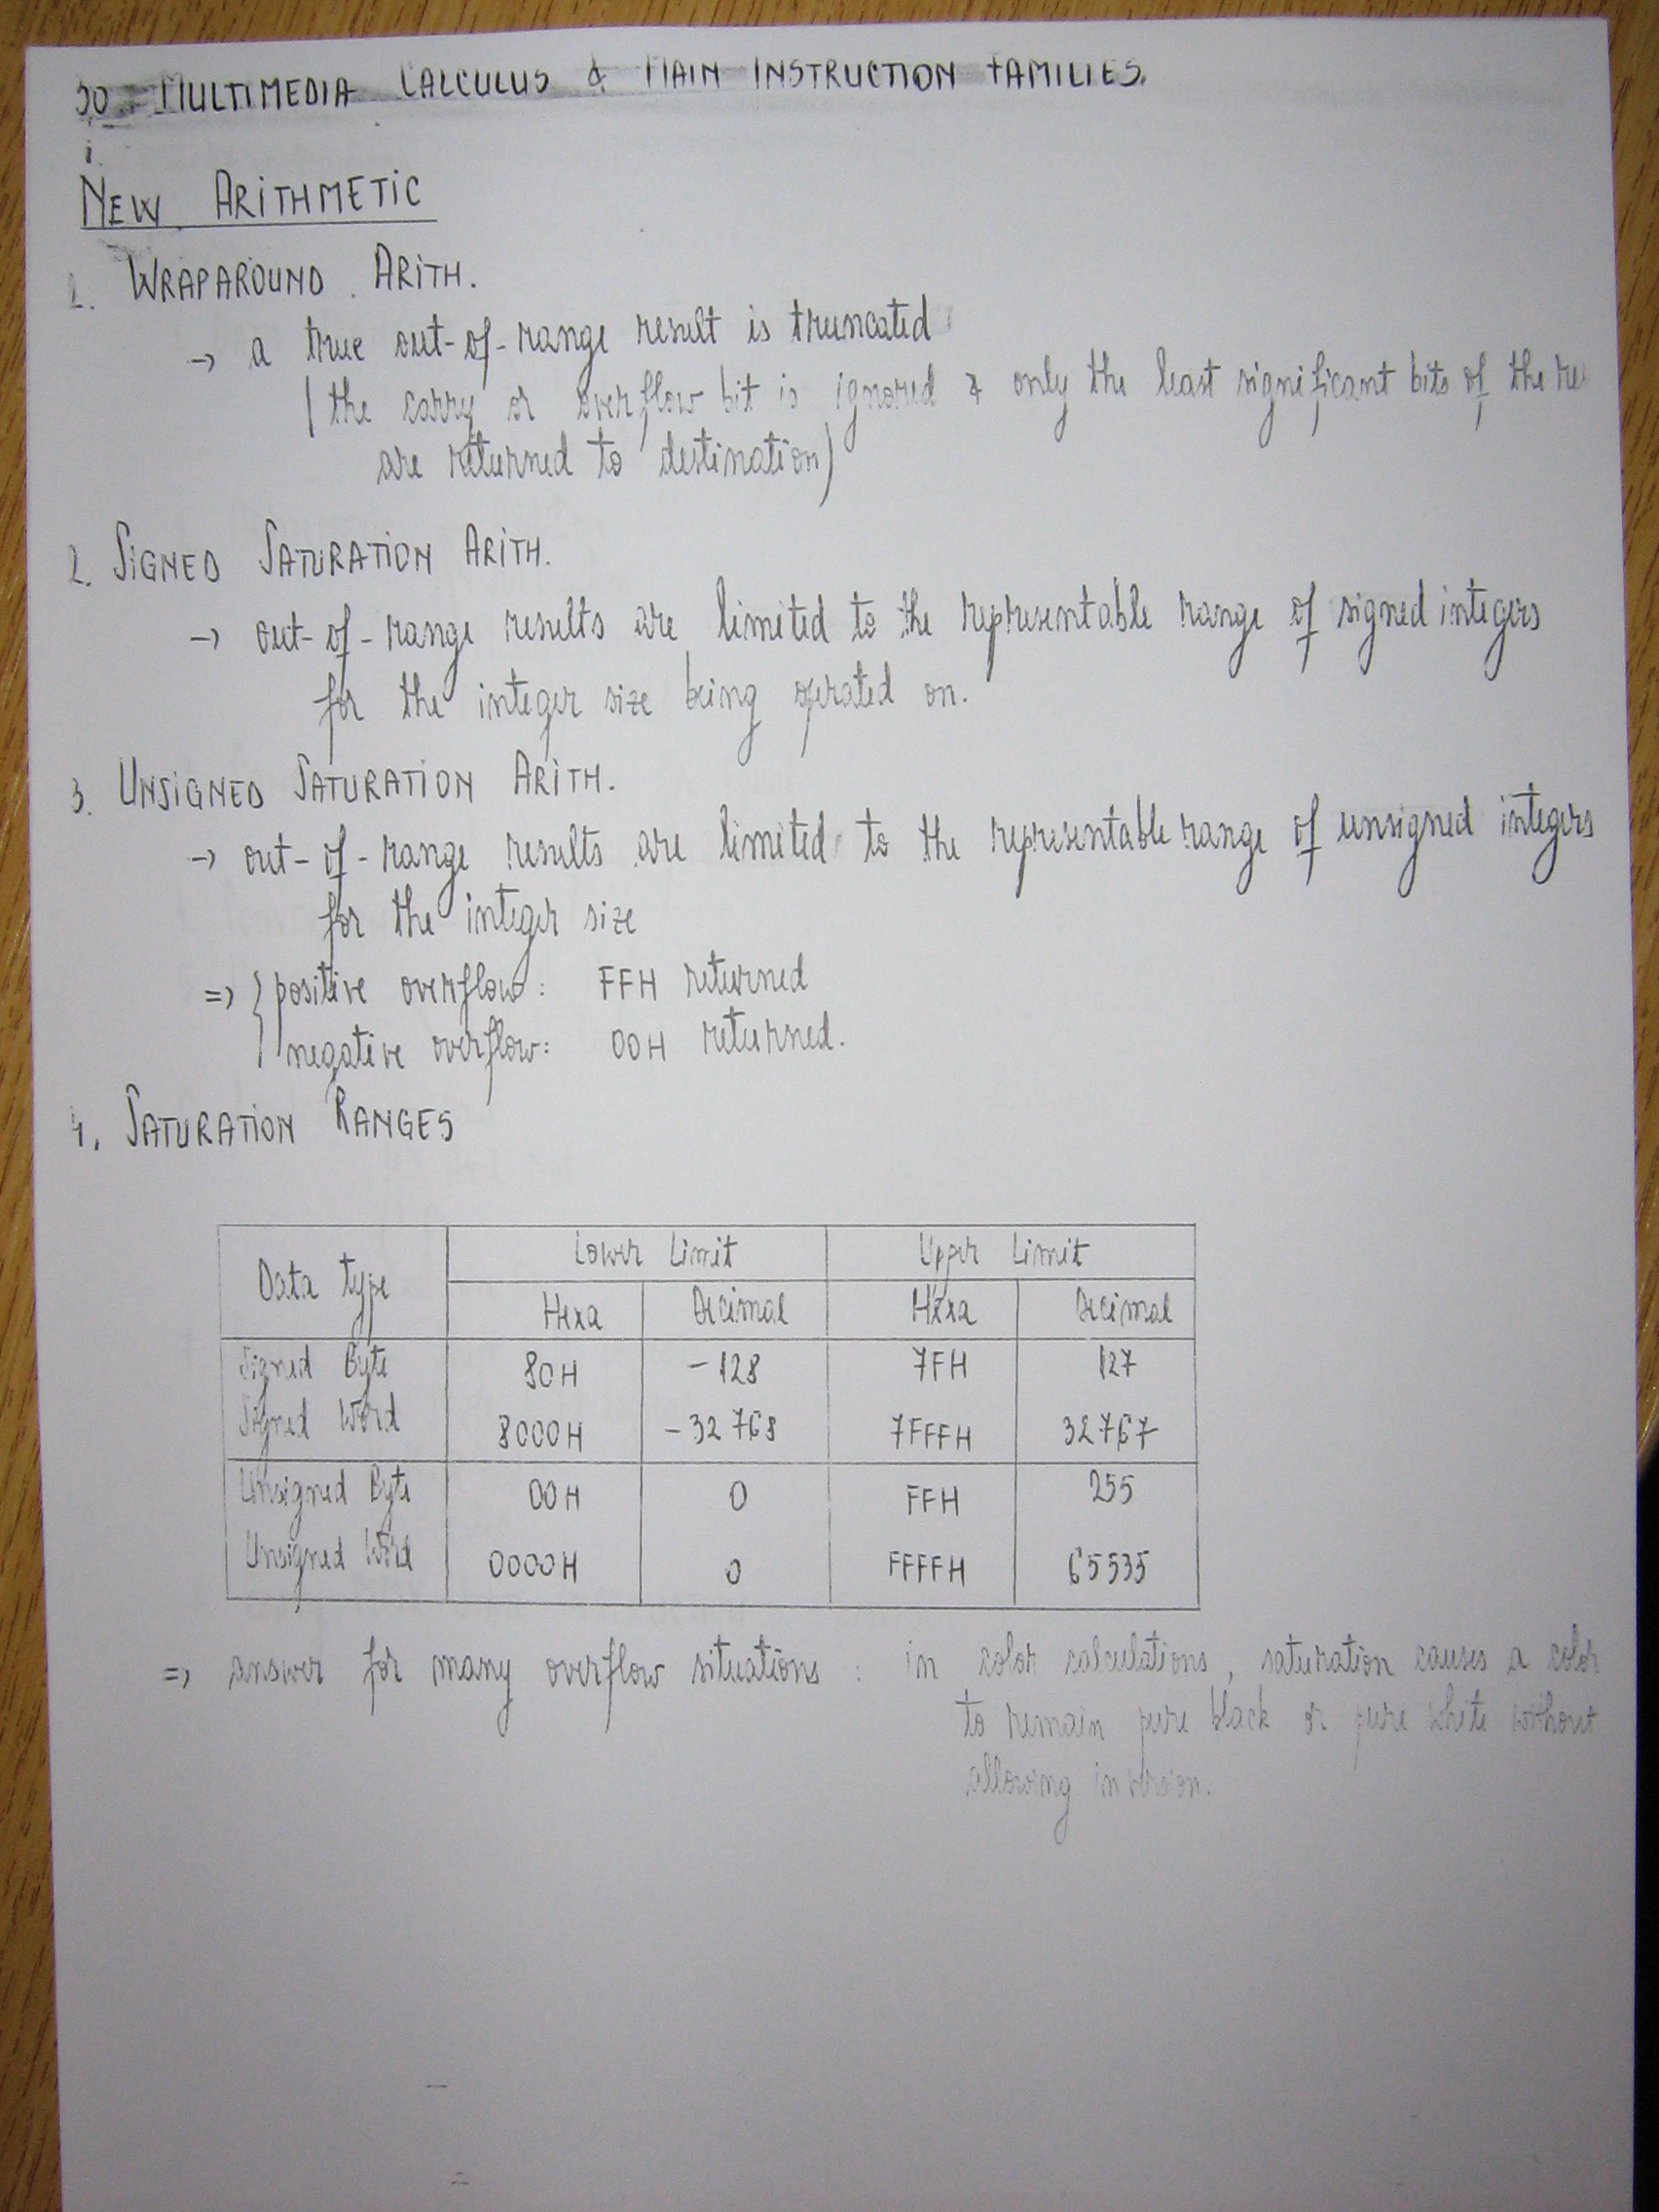 30. MULTIMEDIA CALCULUS & MAIN INSTRUCTION FAMILIES.
NEW ARITHMETIC
1. WRAPAROUND ARITH.
→ a true out-of-range result is truncated
(the carry or overflow bit is ignored & only the least significant bits of the
are returned to destination)
2. SIGNED SATURATION ARITH.
→ out-of-range results are limited to the representable range of signed integers
for the integer size being operated on.
3. UNSIGNED SATURATION ARITH.
→ out-of-range results are limited to the representable range of unsigned integers
for the integer size
=> { positive overflow: FFH returned
negative overflow: 00H returned.
4. SATURATION RANGES
Data type Lower Limit Upper Limit
Hexa Decimal Hexa Decimal
Signed Byte 80H -128 7FH 127
Signed Word 8000H -32768 7FFFH 32767
Unsigned Byte 00H 0 FFH 255
Unsigned Word 0000H 0 FFFFH 65535
=> answer for many overflow situations : in color calculations, saturation causes a color
to remain pure black or pure white without
allowing inversion.